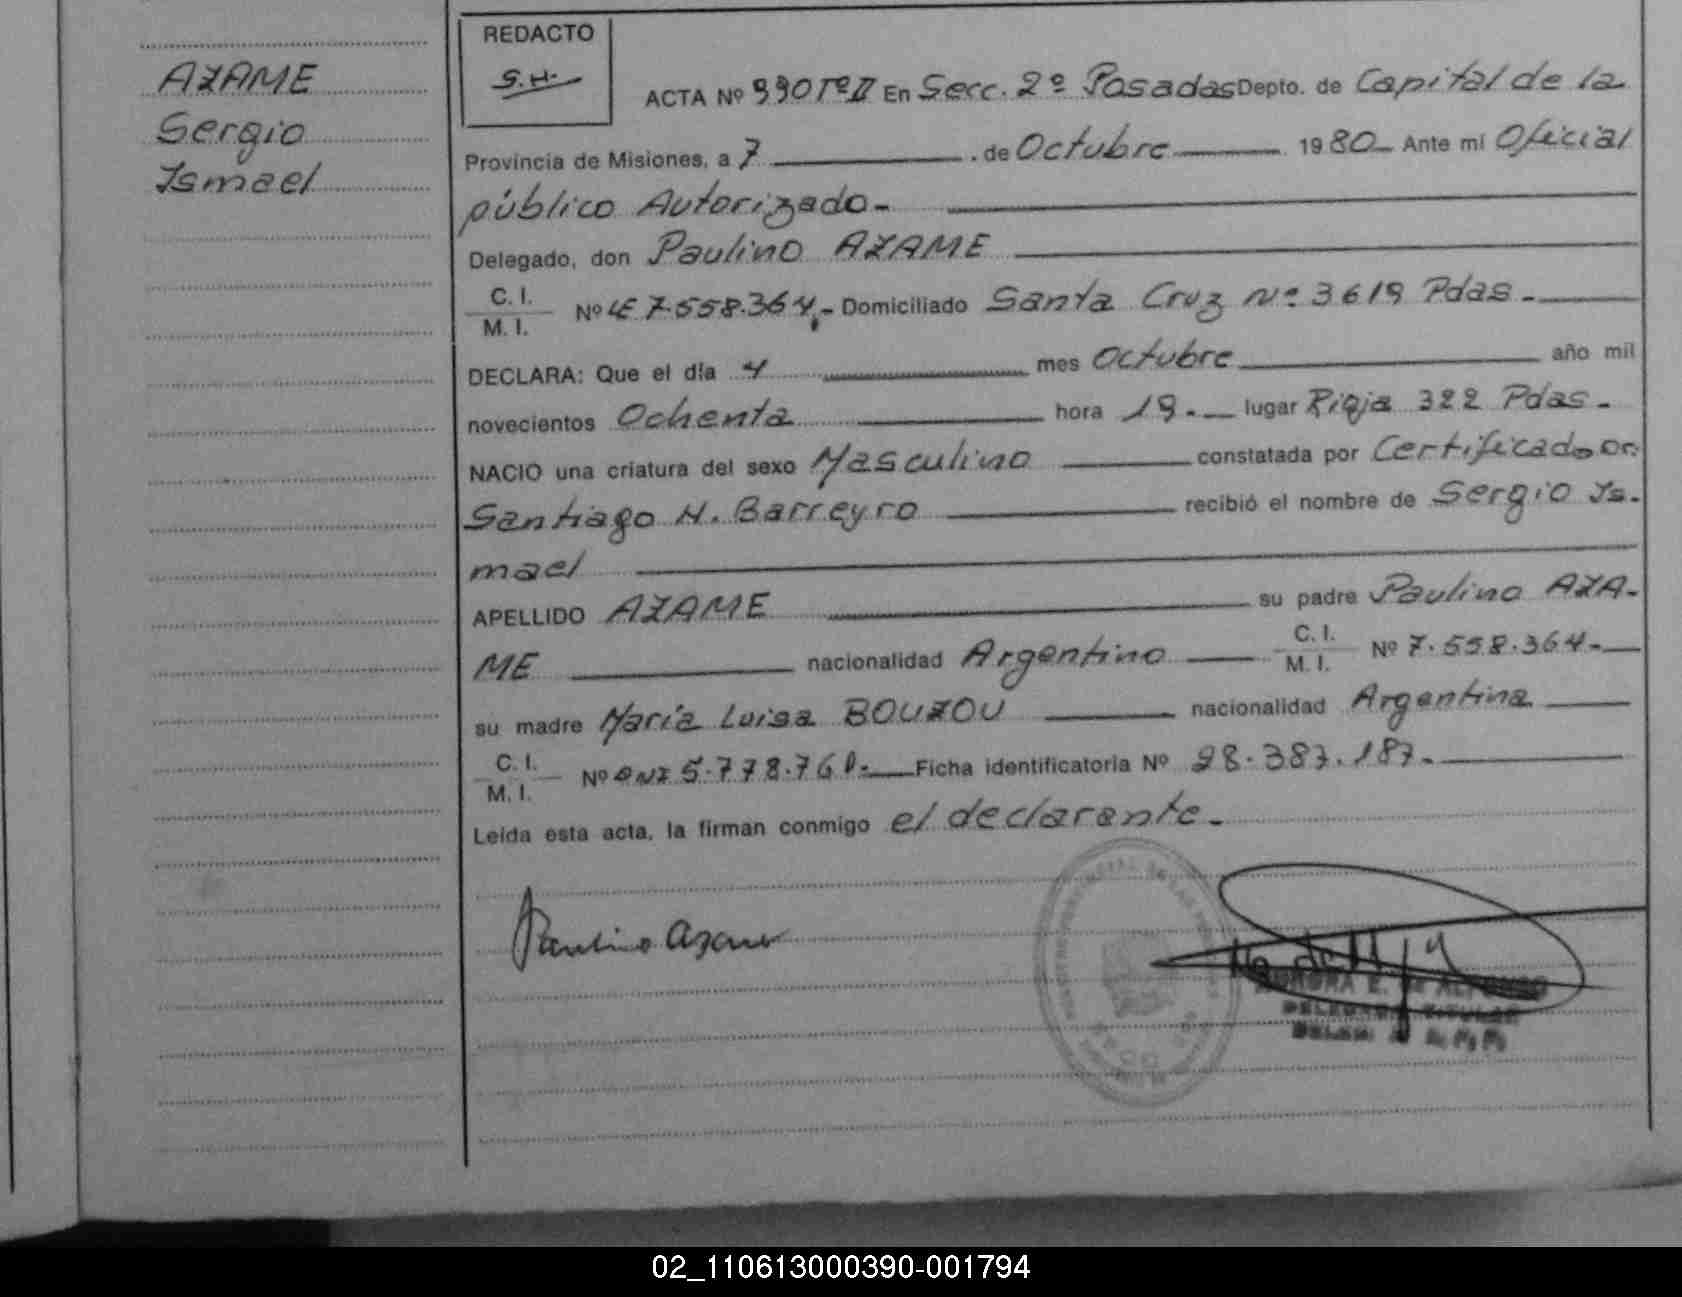 AZAME
Sergio
Ismael
REDACTO
S.H.
ACTA Nº 990 Tº II En Secc. 2º Posadas Depto. de Capital de la
Provincia de Misiones, a 7 . de Octubre 1980 Ante mí Oficial
público Autorizado-
Delegado, don Paulino AZAME
C. I.
M. I. Nº LE 7.558.364.- Domiciliado Santa Cruz Nº 3619 Pdas.-
DECLARA: Que el día 4 mes Octubre año mil
novecientos Ochenta hora 19.- lugar Rioja 322 Pdas.-
NACIO una criatura del sexo Masculino constatada por Certificado Dr.
Santiago H. Barreyro recibió el nombre de Sergio Is-
mael
APELLIDO AZAME su padre Paulino AZA-
ME nacionalidad Argentino C. I. M. I. Nº 7.558.364.-
su madre María Luisa BOUZOU nacionalidad Argentina
C. I.
M. I. Nº DNI 5.778.760.- Ficha identificatoria Nº 28.387.187.-
Leída esta acta, la firman conmigo el declarante.-
Paulino Azame
DELEGADA TITULAR
02_110613000390-001794